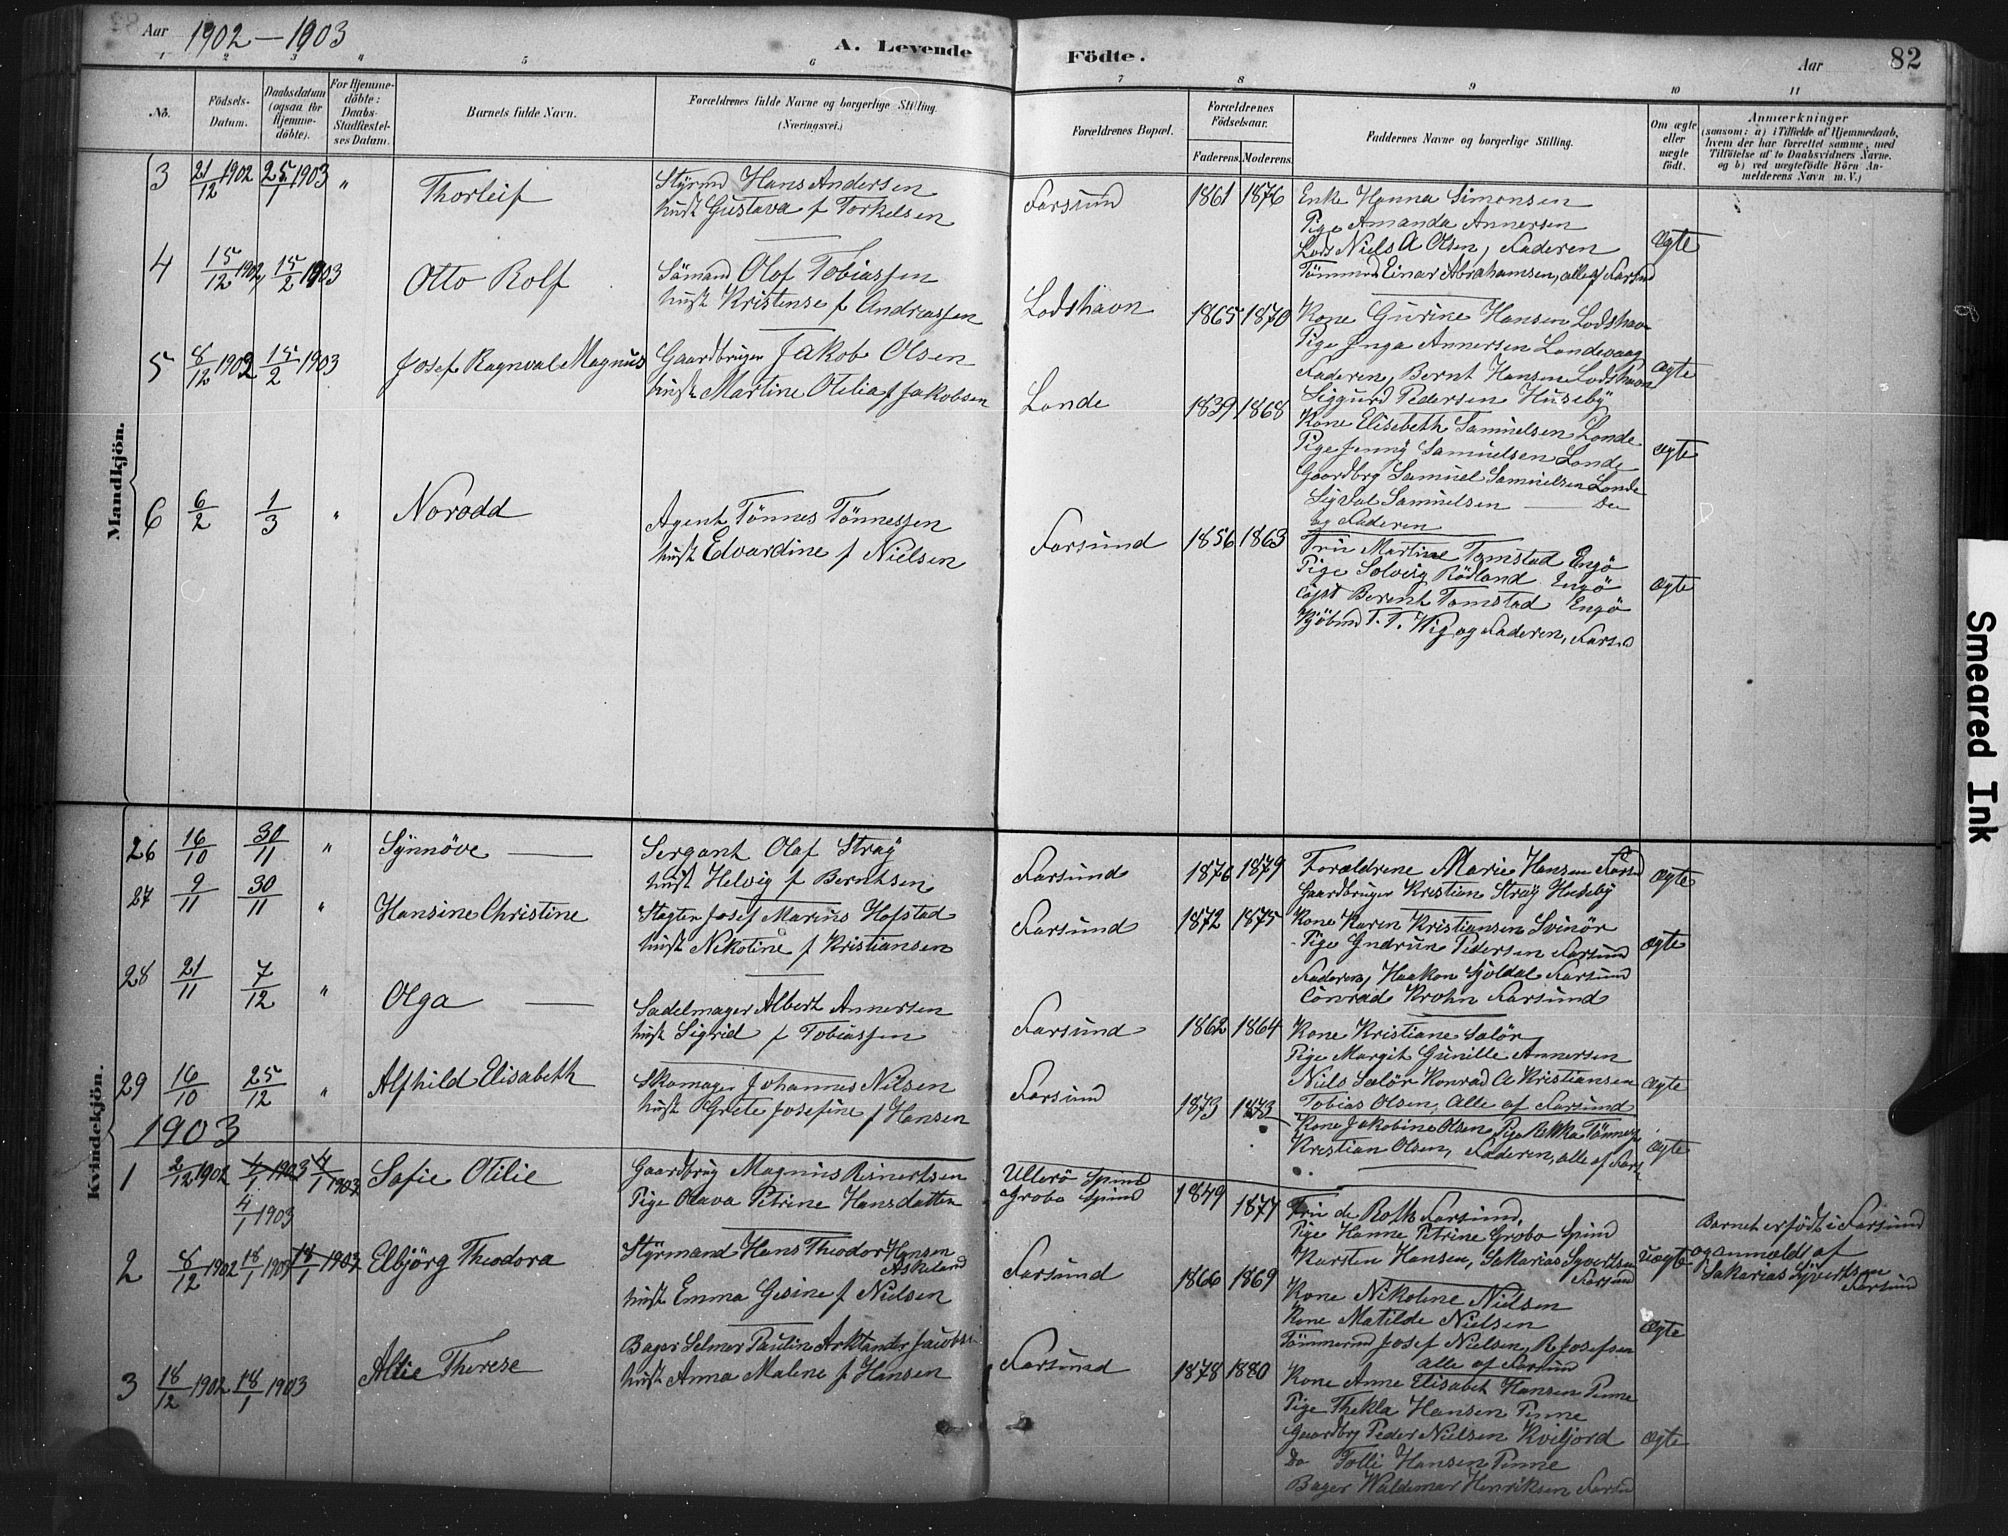 Aar 1902-1903
A. Levende Fødte.
Aar 82
1 2 3 4 5 6 7 8 9 10 11
No.
Fødsels-Datum.
Daabsdatum (ogsaa for Hjemme-døbte).
For Hjemme-døbte: Daabs-Stadfæstel-ses Datum.
Barnets fulde Navn.
Forældrenes fulde Navne og borgerlige Stilling.
(Næringsvei.)
Forældrenes Bopæl.
Forældrenes Fødselsaar.
Faderens. Moderens.
Faddernes Navne og borgerlige Stilling.
Om ægte eller uægte født.
Anmærkninger
(saasom: a) i Tilfælde af Hjemmedaab, hvem der har forrettet samme, med Tilføielse af to Daabsvidners Navne. og b) ved uægtefødte Børn An-melderens Navn m. V.)
Mandkjön.
3 21/12 1902 25/1 1903 " Thorleif
Styrmd Hans Andersen
hust Gustava f Torkelsen
Farsund 1861 1876
Enke Hanna Simonsen
Pige Amanda Annersen
Lods Niels A Olsen, Faderen
Tømmermd Einar Abrahamsen, alle af Farsund
Ægte
4 15/12 1902 15/2 1903 Otto Rolf
Sømand Olaf Tobiassen
hust Kristense f Andreassen
Lodshavn 1865 1870
Kone Gurine Hansen Lodshavn
Pige Inga Annersen Londevaag
Faderen, Bernt Hansen Lodshavn
Siggurd Pedersen Huseby
Ægte
5 8/12 1902 15/2 1903 Josef Ragnval Magnus
Gaardbruger Jakob Olsen
hust Martine Otilia f Jakobsen
Londe 1839 1868
Kone Elisebeth Samuelsen Londe
Pige Jenny Samuelsen Londe
Gaardbrg Samuel Samuelsen Londe
Sigval Samuelsen — Do
og Faderen
Ægte
6 6/2 1/3 " Norodd
Agent Tønnes Tønnessen
hust Edvardine f Nielsen
Farsund 1856 1863
Fru Martine Tomstad Engø
Pige Solveig Rødland Engø
Capt Berent Tomstad Engø
Kjøbmd T. T. Wig og Faderen, Farsd
Ægte
Kvindekjön.
26 16/10 30/11 " Synnøve —
Sergant Olaf Stray
hust Helvig f Berntsen
Farsund 1876 1879
Forældrene Marie Hansen Farsd
Gaardbruger Kristian Stray Huseby
Ægte
27 9/11 30/11 " Hansine Christine
Slagter Josef Marius Hofstad
hust Nikoline f Kristiansen
Farsund 1872 1875
Kone Karen Kristiansen Svinør
Pige Gudrun Pedersen Farsund
Faderen, Haakon Sjoldal Farsund
Conrad Krohn Farsund
Ægte
28 21/11 7/12 " Olga —
Sadelmager Albert Annersen
hust Sigrid f Tobiassen
Farsund 1862 1864
Kone Kristiane Salør
Pige Margit Gunille Annersen
Niels Salør Konrad A Kristiansen
Tobias Olsen, Alle af Farsund
Ægte
29 16/10 25/12 " Alfhild Elisabeth
Skomager Johannes Nilsen
hust Grete Josefine f Hansen
Farsund 1873 1873
Kone Jakobine Olsen, Pige Rikka Tønnes
Kristian Olsen, Faderen, alle af Fars
Ægte
1903
1 2/12 1902 4/1 1903 4/1 1903 Sofie Otilie
4/1 1903
Gaardbrug Magnus Reinertsen
Pige Olava Petrine Hansdatter
Ullerø Spind
Grobo Spind
1849 1877
Fru de Rolh Farsund,
Pige Hanne Petrine Grobo Spind
Karsten Hansen, Sakarias Syvertsen
Farsund
Uægte
Barnet er født i Farsund
og anmeldt af
Sakarias Syvertsen
Farsund
2 8/12 1902 18/1 1903 18/1 1903 Elbjørg Theodora
Styrmand Hans Theodor Hansen
Askeland
hust Emma Gesine f Nielsen
Farsund 1866 1869
Kone Nikoline Nielsen
Kone Matilde Nielsen
Tømmermd Josef Nielsen, R Josefsen
alle af Farsund
Ægte
3 18/12 1902 18/1 1903 Allie Therese
Bager Selmer Paulin Arktander Jacobse
hust Anna Malene f Hansen
Farsund 1878 1880
Kone Anne Elisabet Hansen Penne
Pige Thekla Hansen Penne
Gaardbrg Peder Nielsen Kviljord
Do Tolli Hansen Penne
Bager Waldemar Henriksen Farsd
Ægte
Smeared Ink